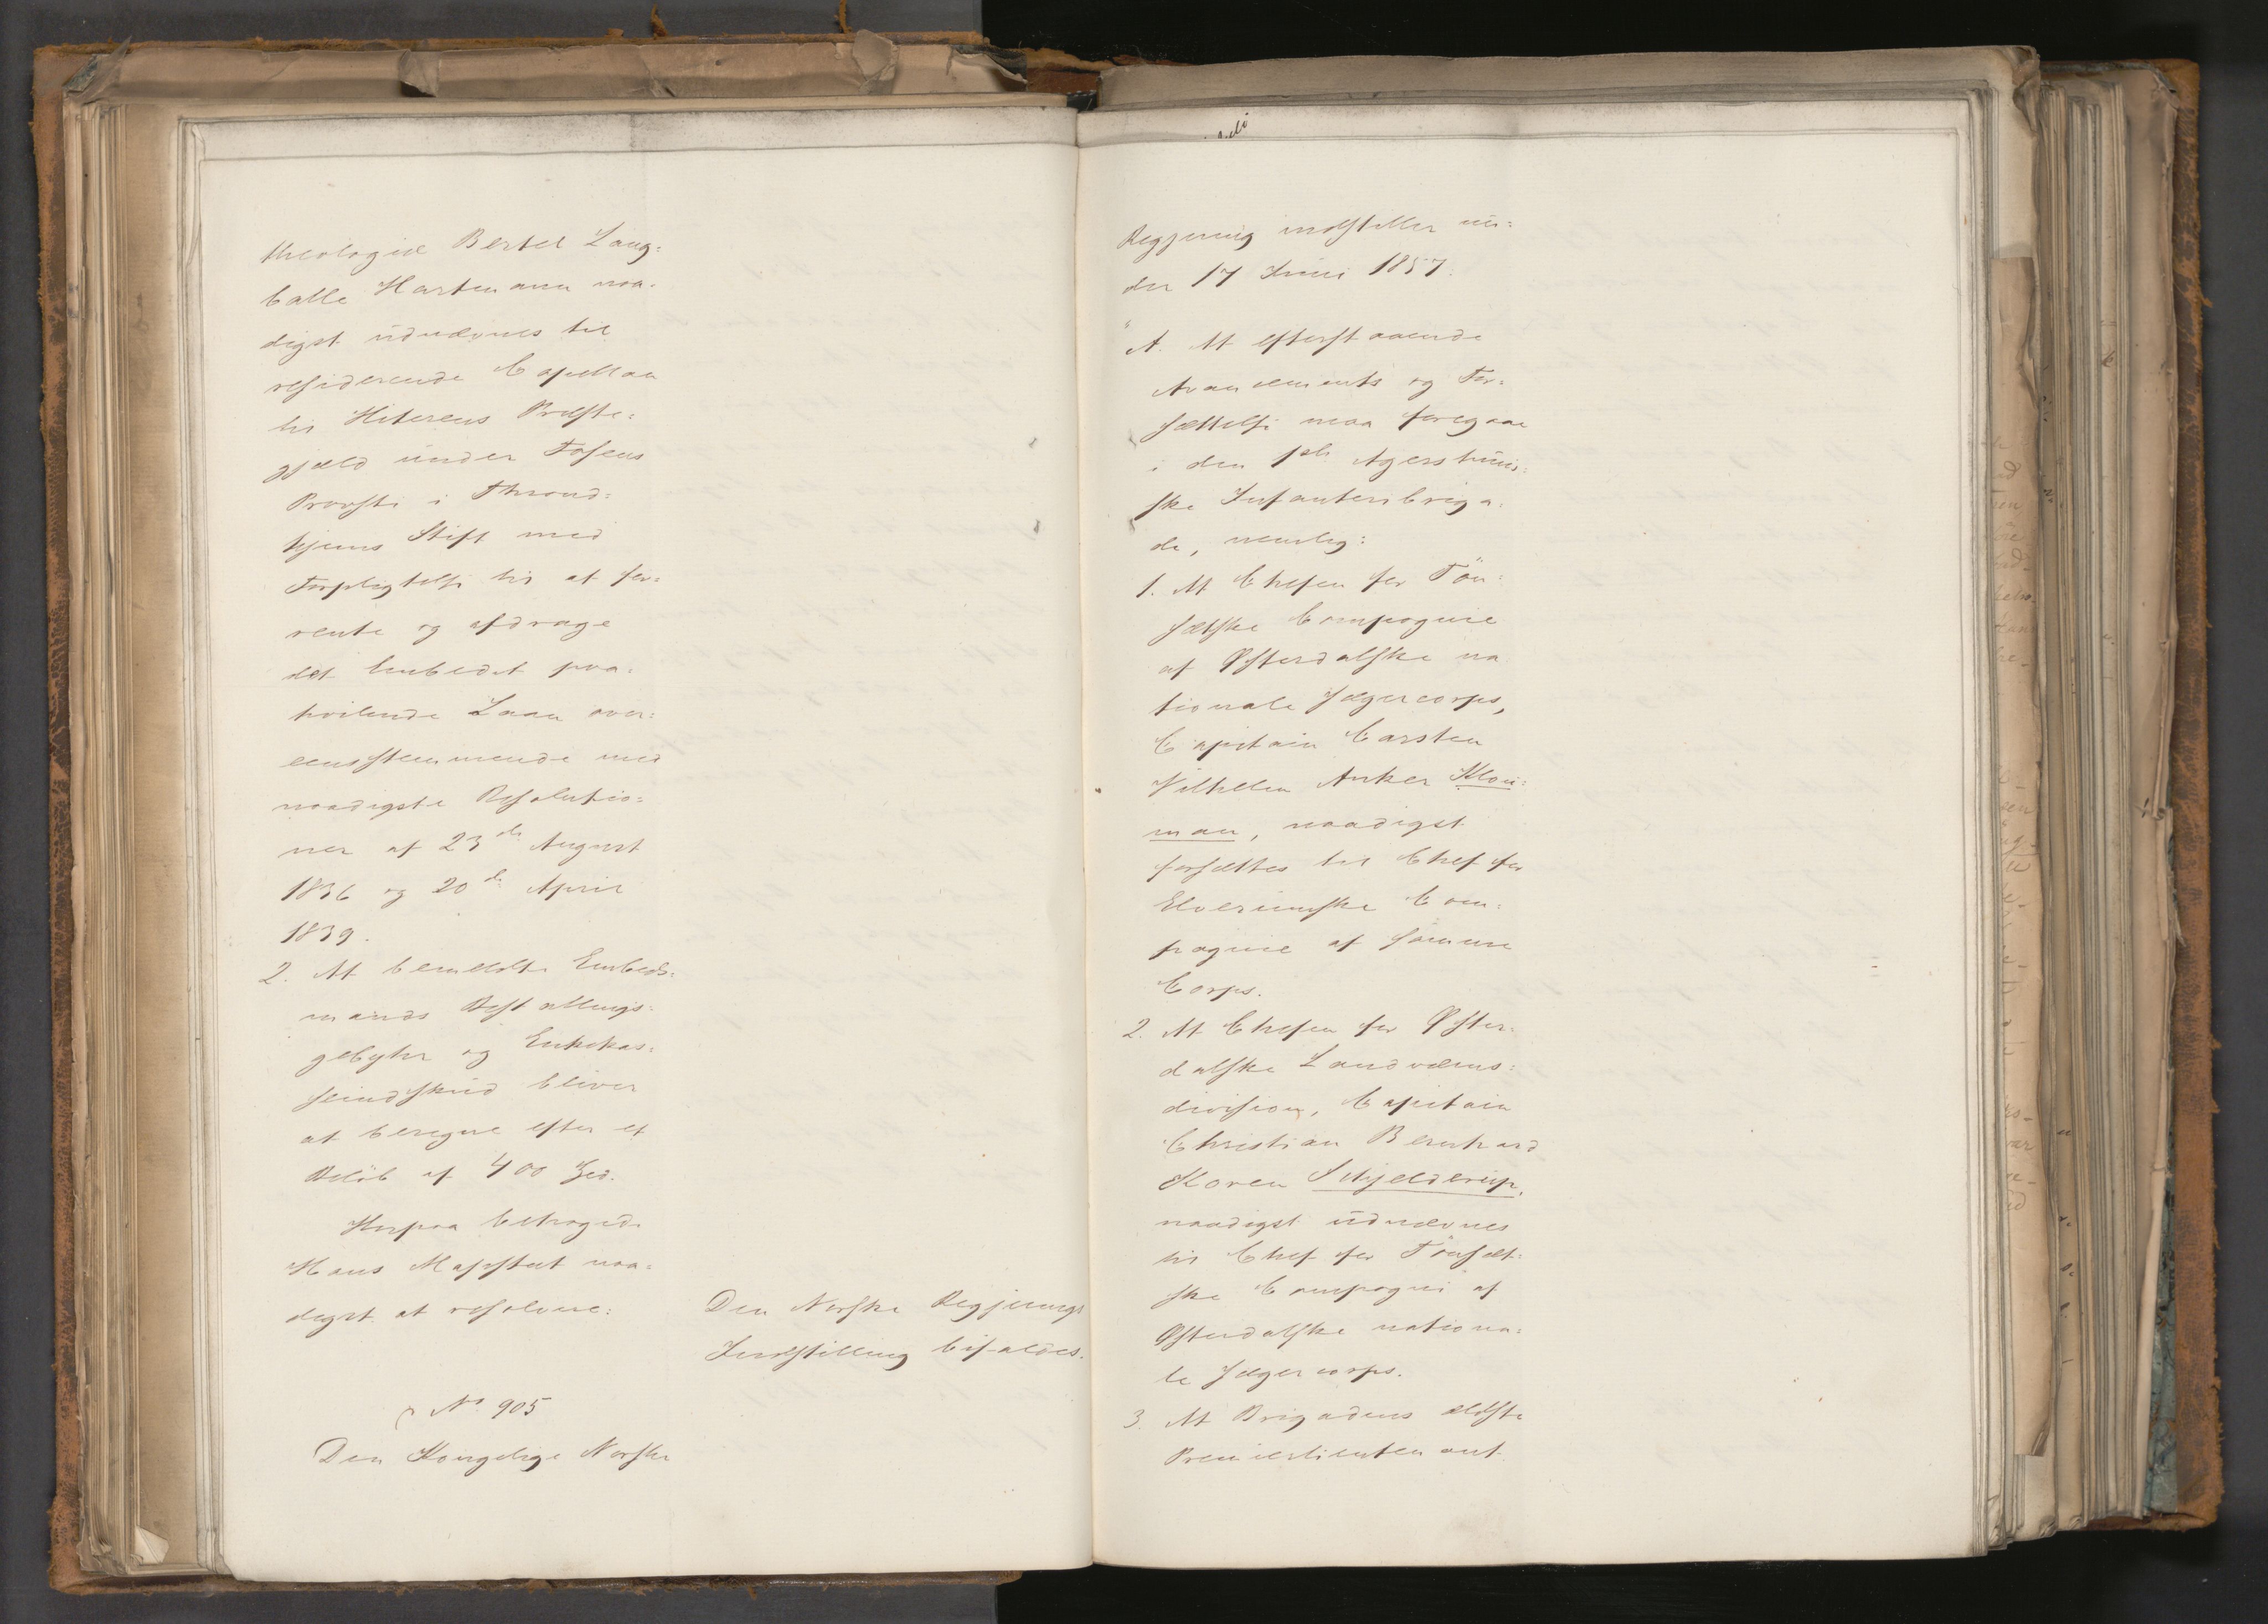 theologiæ Bertel Laug=
balle Hartmann naa=
digst udnævnes til
residerende Capellan
til Hiterens Præste=
gjeld under Fosens
Provsti i Thrond=
hjems Stift med
Forpligtelse til at for=
rente og afdrage
det Embedet paa=
hvilende Laan over=
eensstemmende med
naadigste Resolutio=
ner af 23de August
1836 og 20de April
1839.
2. At bemeldte Embeds=
mands Bestallings=
gebyhr og Enkekas=
seindskud bliver
at beregne efter et
Beløb af 400 Spd.
Herpaa behagede
Hans Majestæt naa=
digst at resolvere:
Den Norske Regjerings
Indstilling bifaldes.
No 905
Den Kongelige Norske
Regjering indstiller un=
der 17 Juni 1857.
"A. At efterstaaende
Avancements og For=
sættelse maa foregaae
i den 1ste Agershuus=
ske Infanteribriga=
de, nemlig:
1. At Chefen for Tön=
sætske Compagnie
af Østerdalske na
tionale Jægercorps,
Capitain Carsten
Vilhelm Anker Klou=
man, naadigst
forsættes til Chef for
Elverumske Com=
pagnie af samme
Corps.
2. At Chefen for Øster=
dalske Landværns=
division, Capitain
Christian Bernhard
Koren Schjelderup,
naadigst udnævnes
til Chef for Tönsæt=
ske Compagni af
Østerdalske nationa=
le Jægercorps.
3. At Brigadens ældste
Premierlieutenant